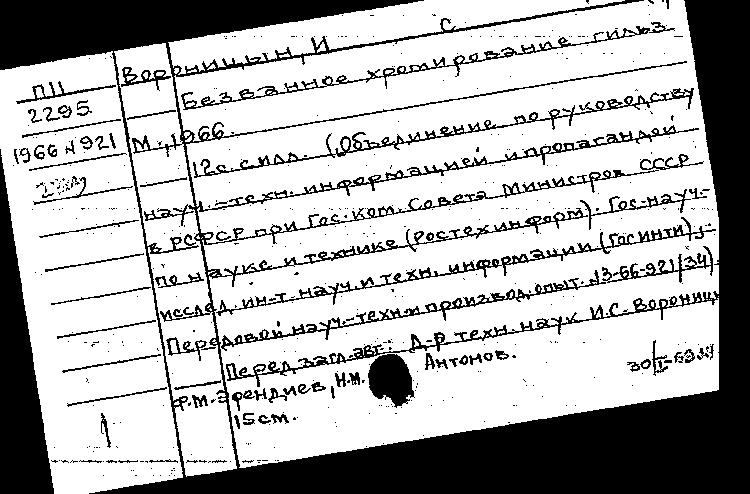 Вороницын, И С
П11
Безванное хромирование гильз.
2295
М., 1966.
1966 N921
12с. с илл. (Объединение по руководству
науч.-техн. информацией и пропагандой
в РСФСР при Гос. ком. Совета Министров СССР
по науке и технике (Ростехинформ). Гос. науч.-
исслед. ин-т. науч. и техн. информации (Госинти),-
Передовой науч.-техн. и производ. опыт. N3-66-921/34).
Перед загл. авт.: Д-р техн. наук И.С.Ворониц
Ф.М. Эфендиев, Н.М. Антонов.
15 см.